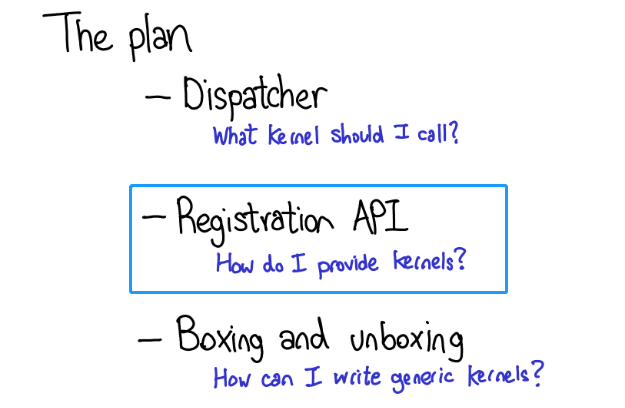 The plan
- Dispatcher
What kernel should I call?
- Registration API
How do I provide kernels?
- Boxing and unboxing
How can I write generic kernels?